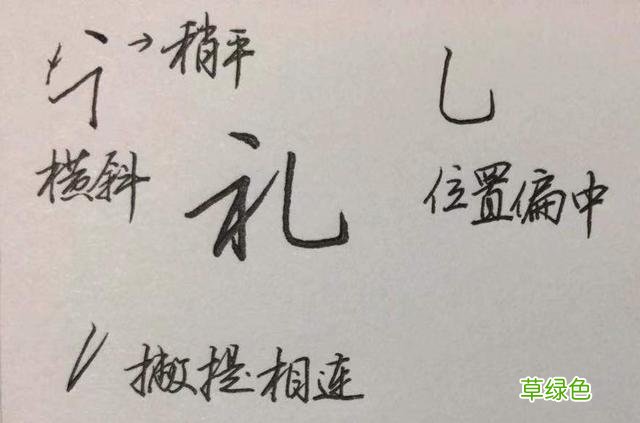 稍平
横斜
礼
位置偏中
撇提相连
草绿色